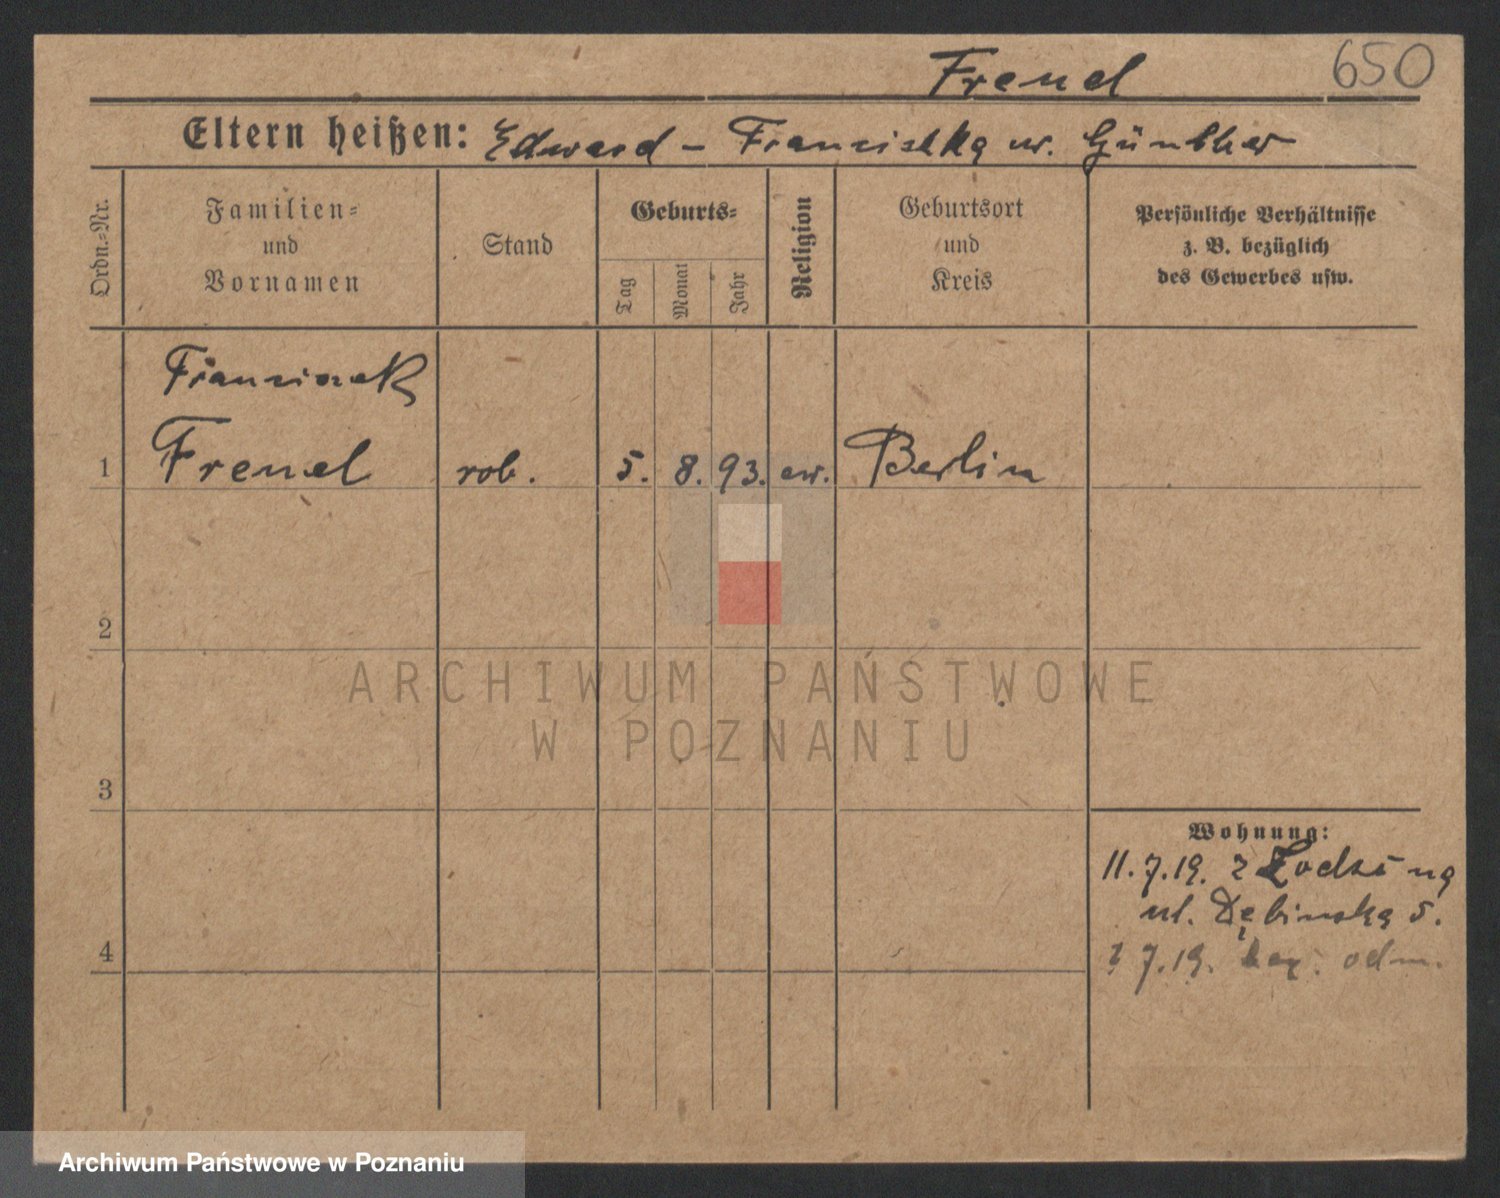 Freud 650
Eltern heißen: Edward – Franziska ur. Günther
Ordn.=Nr.
Familien=
und
Vornamen
Stand
Geburts=
Tag
Monat
Jahr
Religion
Geburtsort
und
Kreis
Persönliche Verhältnisse
z. B. bezüglich
des Gewerbes usw.
Franciszek
1 Freud rob. 5. 8. 93. ew. Berlin
2
ARCHIWUM PAŃSTWOWE
W POZNANIU
3
Wohnung:
11.7.19. z Łodzi na
ul. Dębińską 5.
4
7.19. odm.
Archiwum Państwowe w Poznaniu